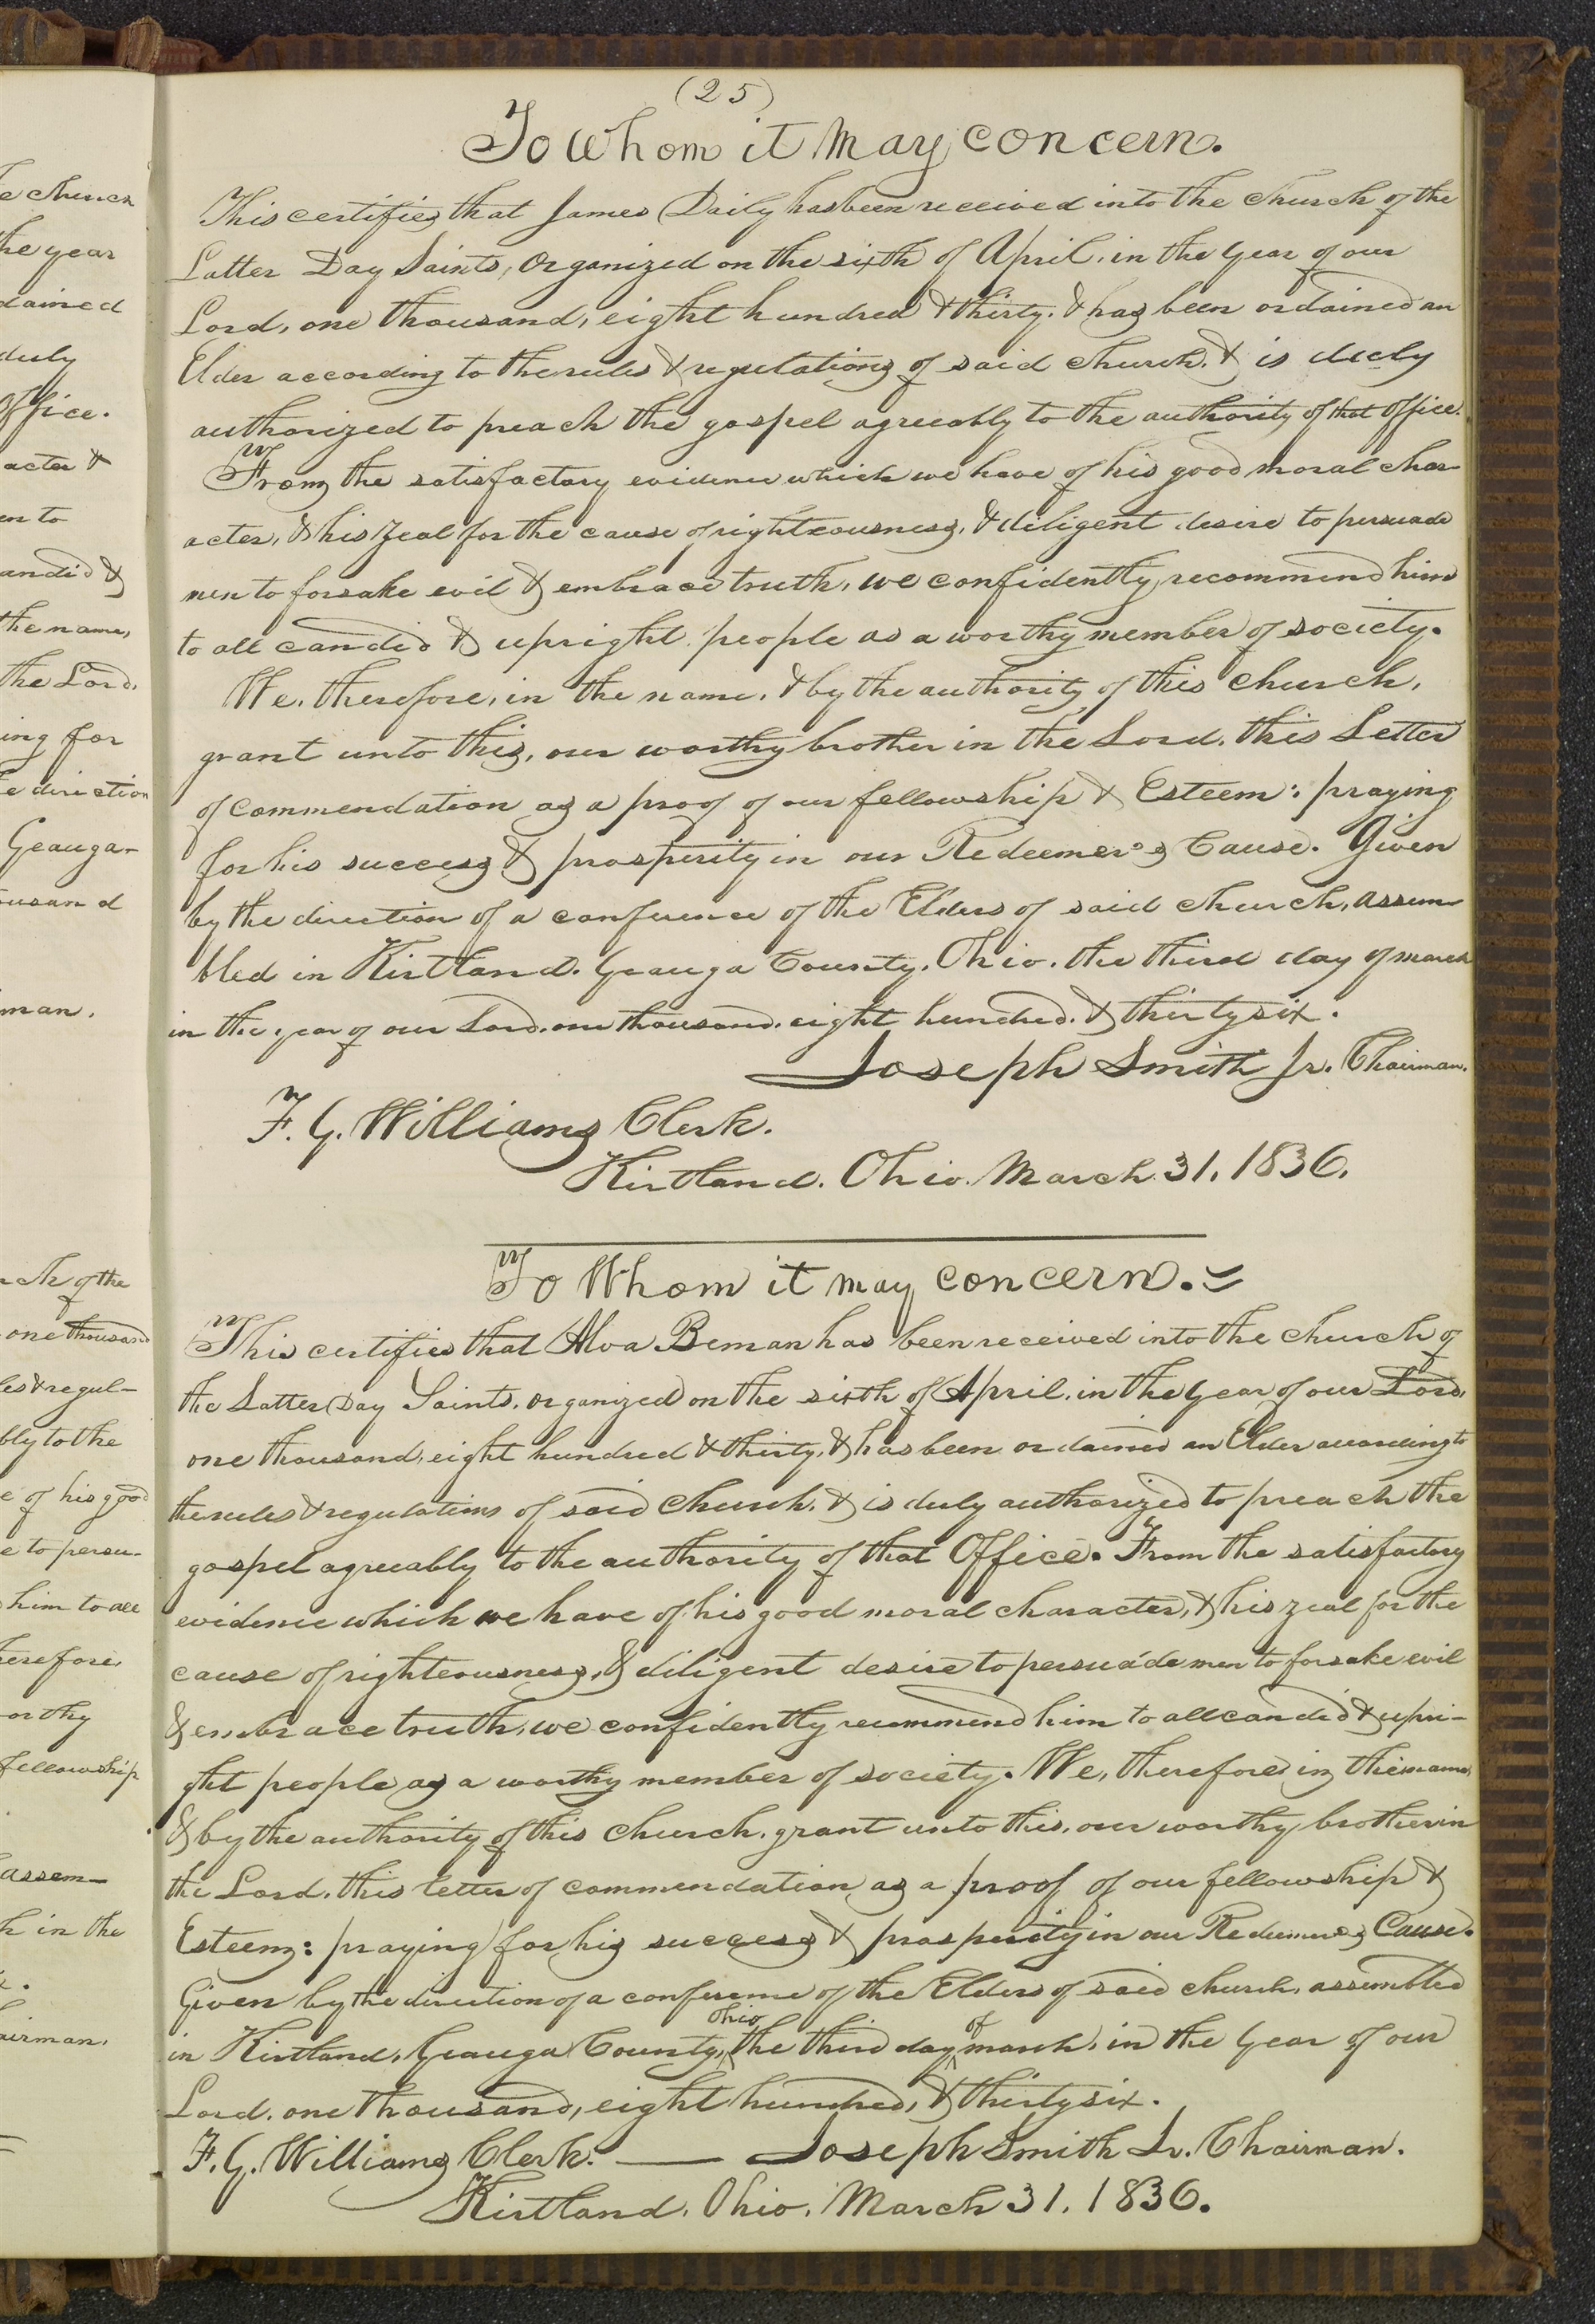 (25)
To whom it may concern.
This certifies that James Daily has been received into the Church of the
Latter Day Saints, organized on the sixth of April, in the year of our
Lord, one thousand, eight hundred & thirty, & has been ordained an
Elder according to the rules & regulations of said church, & is duely
authorized to preach the gospel agreeably to the authority of that office.
From the satisfactory evidence which we have of his good moral char-
acter, & his zeal for the cause of righteousness, & diligent desire to persuade
men to forsake evil & embrace truth, we confidently recommend him
to all candid & upright people as a worthy member of society.
We, therefore, in the name, & by the authority of this church,
grant unto this, our worthy brother in the Lord, this Letter
of commendation as a proof of our fellowship & Esteem: praying
for his success & prosperity in our Redeemer's Cause. Given
by the direction of a conference of the Elders of said church, assem-
bled in Kirtland, Geauga County, Ohio, the third day of march
in the year of our Lord, one thousand, eight hundred, & thirty six.
Joseph Smith Jr. Chairman.
F. G. Williams Clerk.
Kirtland, Ohio. March 31, 1836.
To Whom it may concern.
This certifies that Alva Beman has been received into the church of
the Latter Day Saints, organized on the sixth of April, in the year of our Lord,
one thousand, eight hundred & thirty, & has been ordained an Elder according to
the rules & regulations of said church, & is duly authorized to preach the
gospel agreeably to the authority of that Office. From the satisfactory
evidence which we have of his good moral character, & his zeal for the
cause of righteousness, & diligent desire to persuade men to forsake evil
& embrace truth, we confidently recommend him to all candid & upri-
ght people as a worthy member of society. We, therefore in the name,
& by the authority of this church, grant unto this, our worthy brother in
the Lord, this letter of commendation as a proof of our fellowship &
Esteem: praying for his success & prosperity in our Redeemers Cause.
Given by the direction of a conference of the Elders of said church, assembled
in Kirtland, Geauga County, Ohio the third day of march, in the year of our
Lord, one thousand, eight hundred, & thirty six.
F. G. Williams Clerk. — Joseph Smith Jr. Chairman.
Kirtland, Ohio, March 31, 1836.